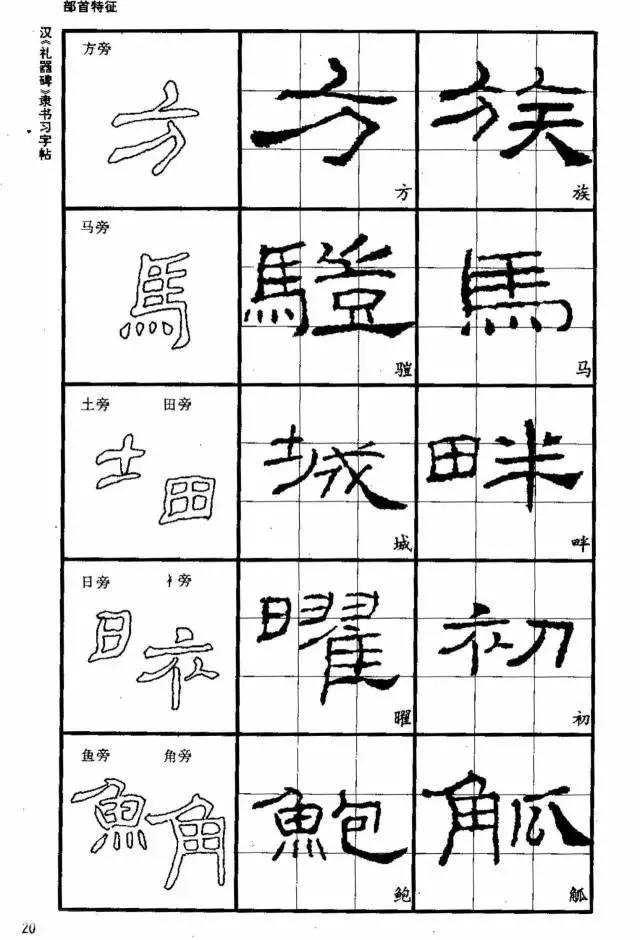 部首特征
汉《礼器碑》隶书习字帖
方旁
方 方 族
方 族
马旁
馬 馬
马
土旁 田旁
土 田 城 畔
城 畔
日旁 衤旁
日 衤 曜 初
曜 初
鱼旁 角旁
魚 角 鮑 觚
鲍 觚
20